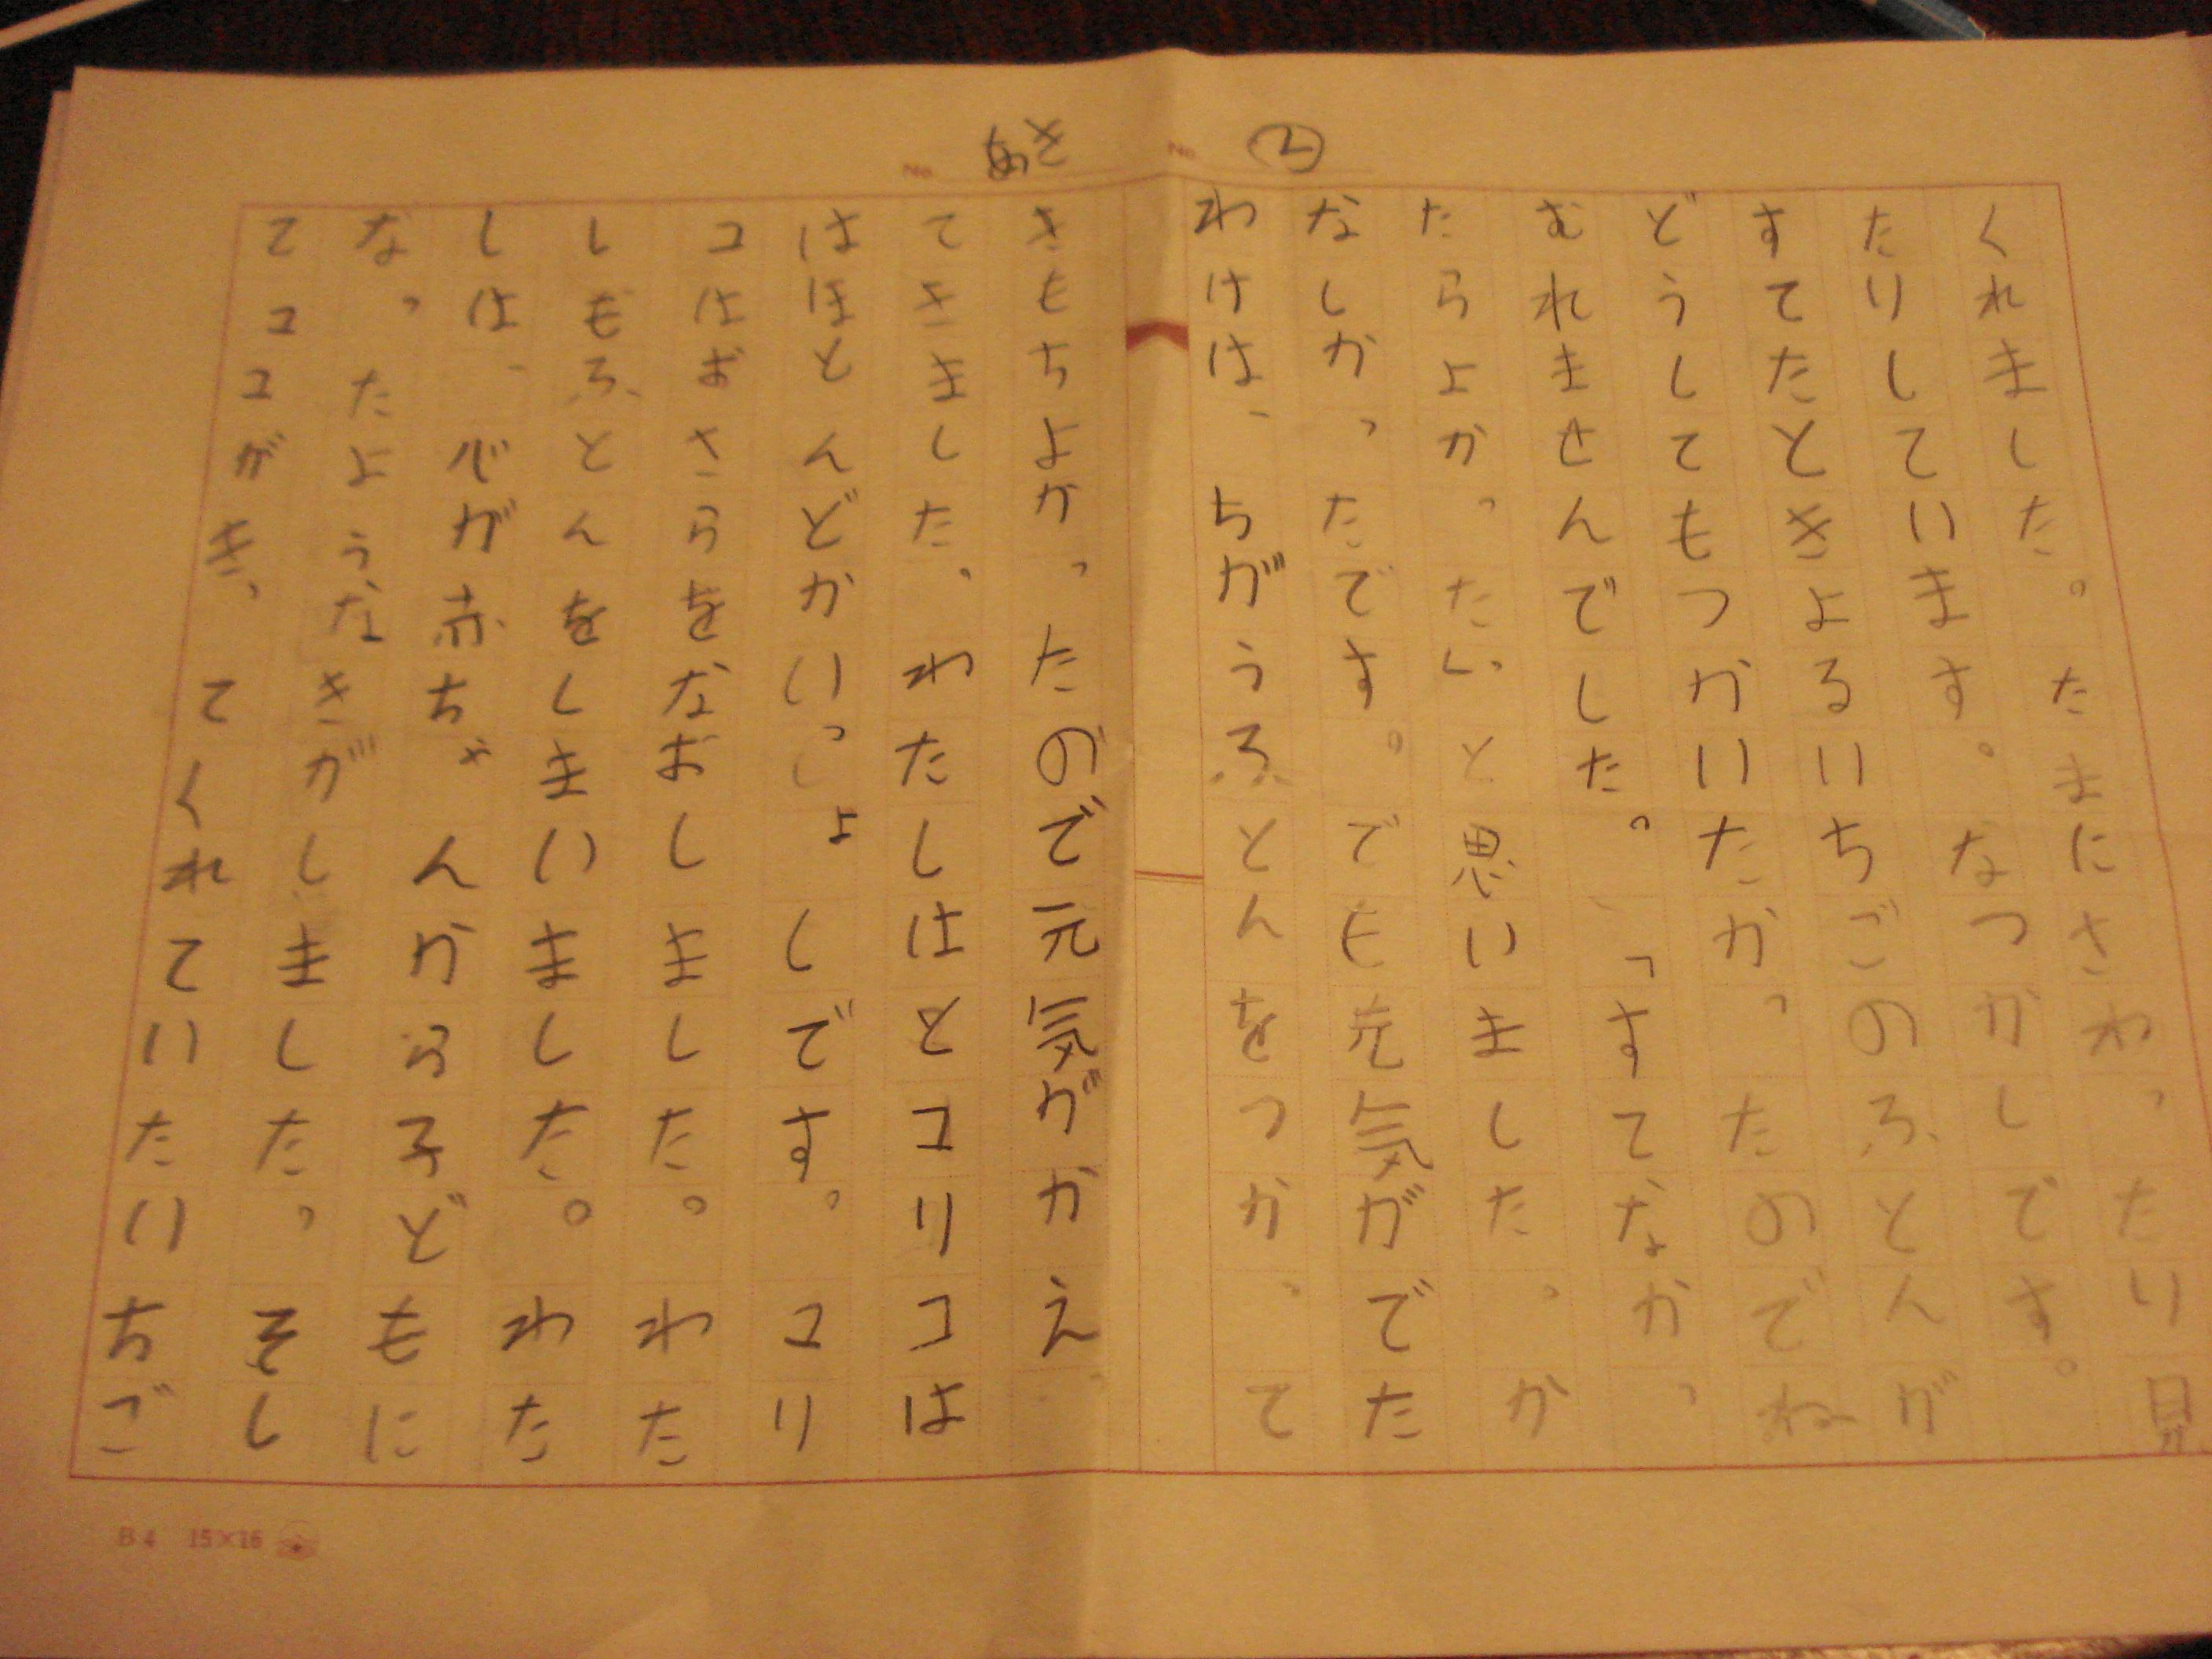 ②
くれました。たまにさわったり見
たりしています。なつかしです。
すてたとききよるいちごのふとんが
どうしてもつかいたかったのでね
むれませんでした。「すてなかっ
たらよかったい」と思いました。か
なしかったです。でも元気がでた
わけは、ちがうふとんをつかって
あき
きもちよかったので元気がかえ
てきました。わたしはとコリコは
はほとんどかいっしょしです。コリ
コはおさらをなおしました。わた
しもふとんをしまいました。わた
しは、心が赤ちゃんから子どもに
なったようなきがしました。そし
てココがき、てくれていたいちご
B4 15×16